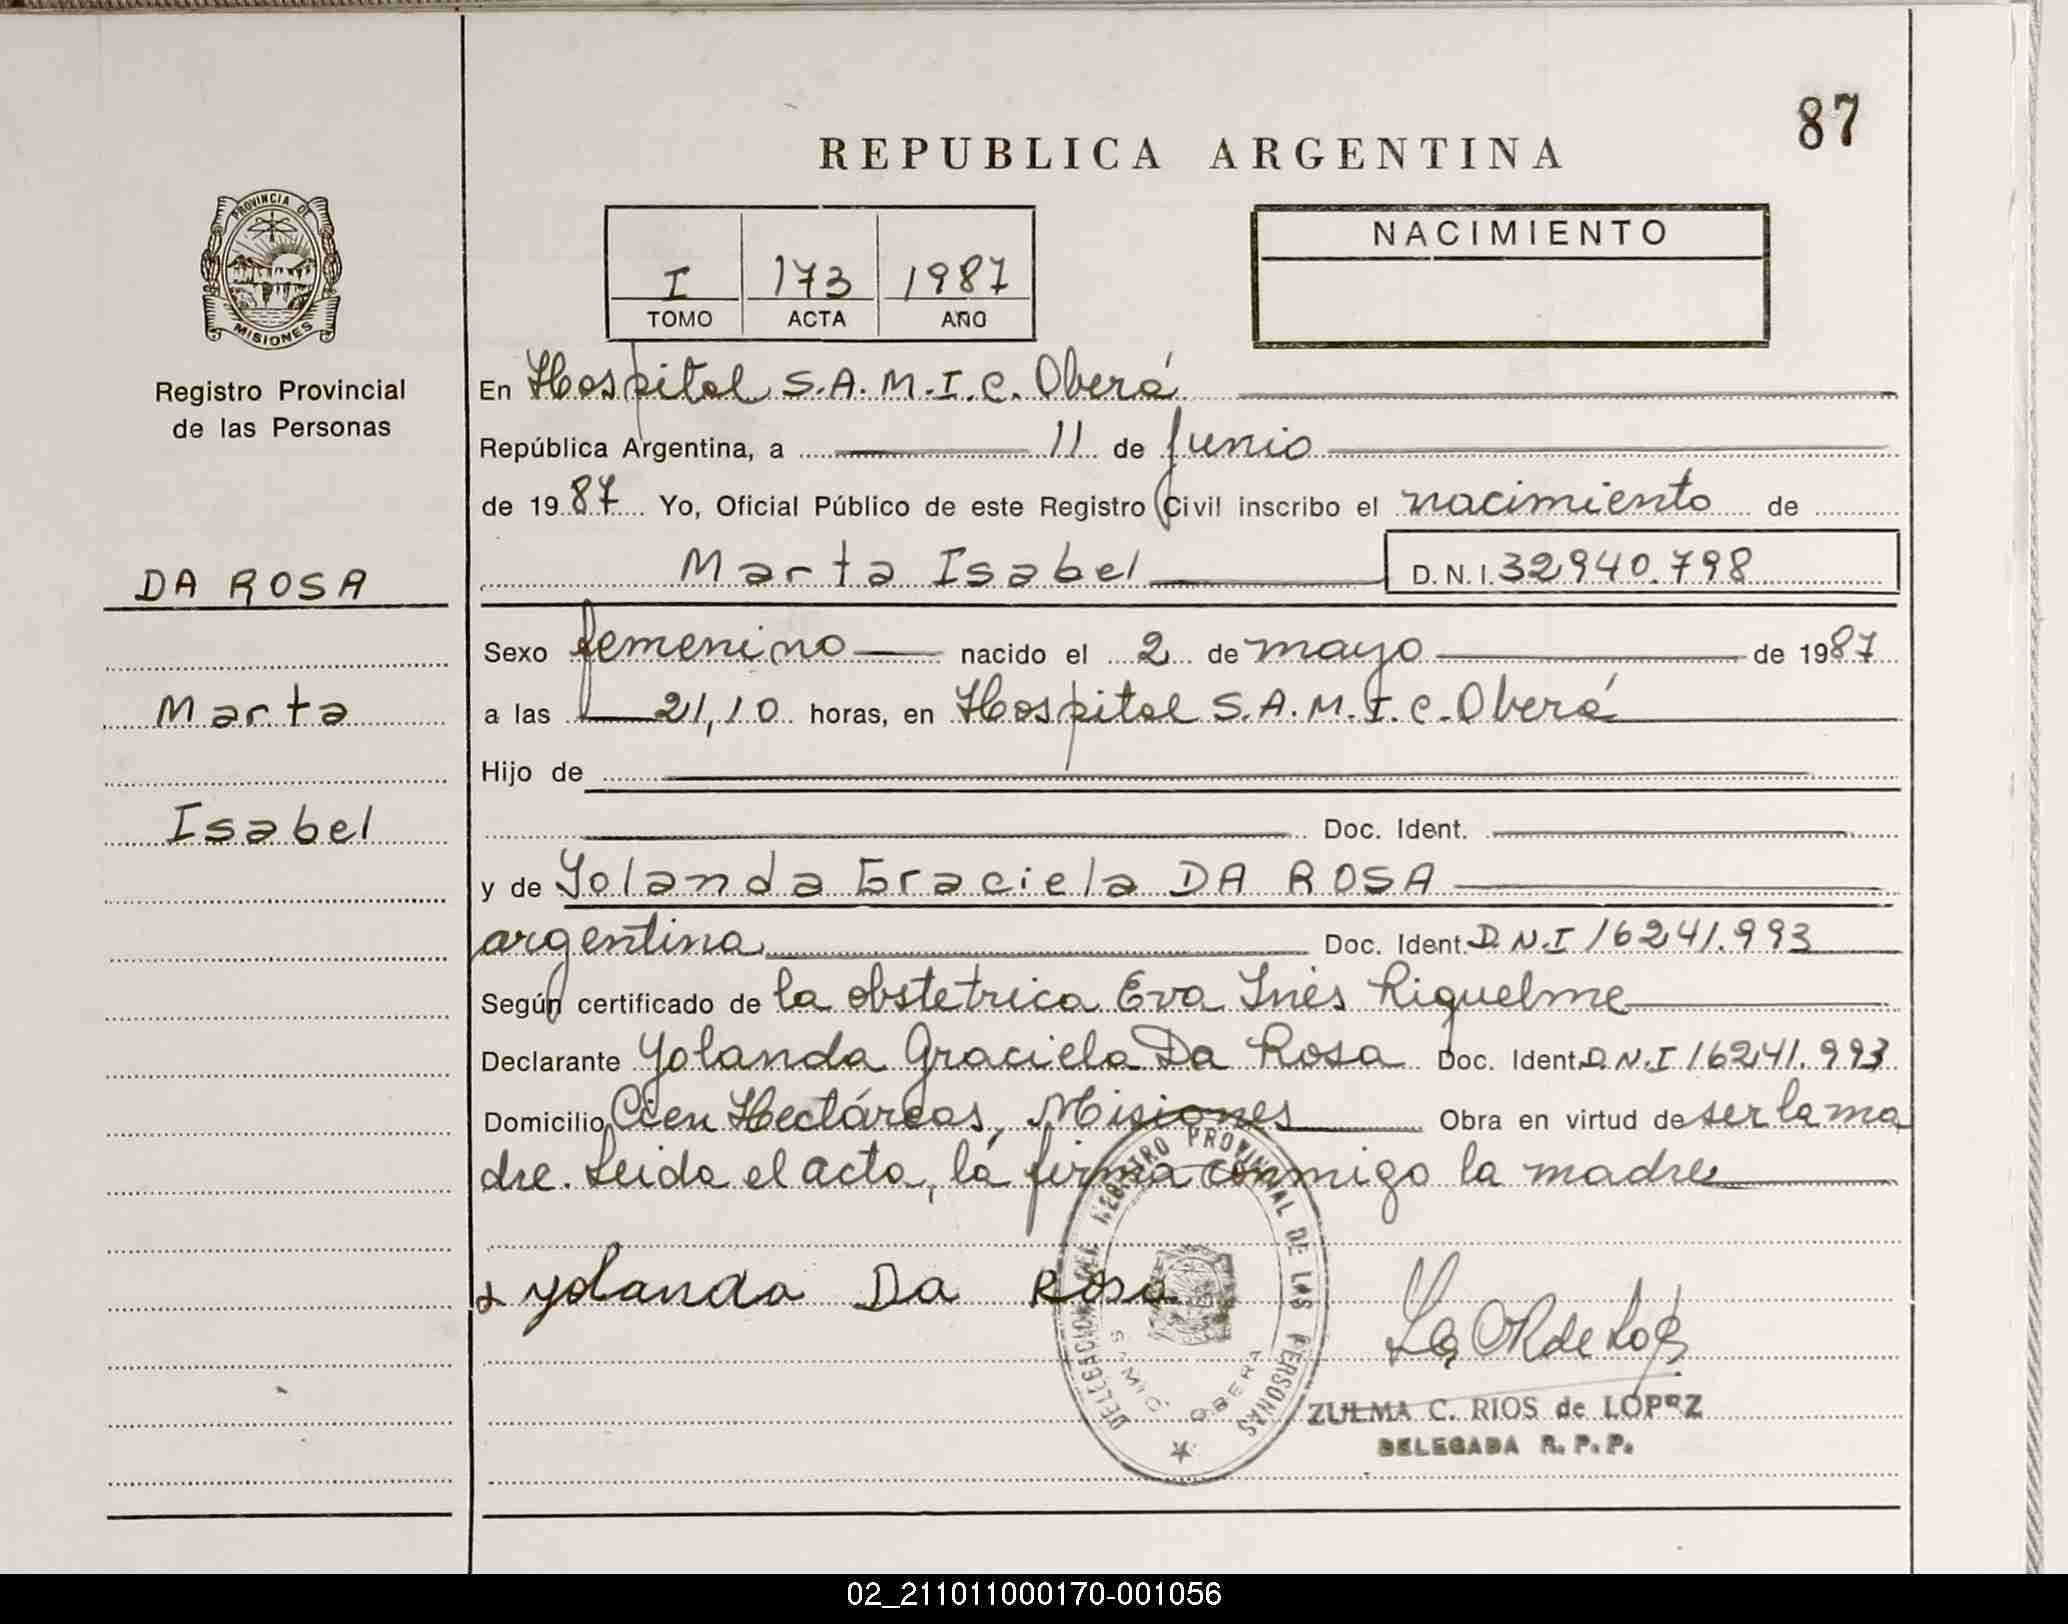 87
REPUBLICA ARGENTINA
PROVINCIA DE
MISIONES
Registro Provincial
de las Personas
I 173 1987
TOMO ACTA AÑO
NACIMIENTO
En Hospital S.A.M.I.C. Oberá
República Argentina, a 11 de Junio
de 1987 Yo, Oficial Público de este Registro Civil inscribo el nacimiento de
Marta Isabel D.N.I. 32940.798
DA ROSA
Marta
Isabel
Sexo femenino nacido el 2 de mayo de 1987
a las 21,10 horas, en Hospital S.A.M.I.C. Oberá
Hijo de
Doc. Ident.
y de Yolanda Graciela DA ROSA
argentina Doc. Ident. D.N.I 16241.993
Según certificado de la obstetrica Eva Inés Riquelme
Declarante Yolanda Graciela Da Rosa Doc. Ident. D.N.I 16241.993
Domicilio Cien Hectáreas, Misiones Obra en virtud de ser la ma
dre. Leida el acta, la firma conmigo la madre
Yolanda Da Rosa
DELEGACION DEL REGISTRO PROVINCIAL DE LAS PERSONAS
SAMIC OBERA
ZULMA C. RIOS de LOPEZ
DELEGADA R. P. P.
02_211011000170-001056